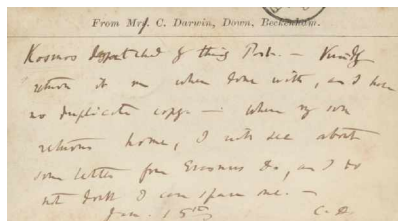 From Mrs. C. Darwin, Down, Beckenham.
Kosmos despatched by this Post.— Kindly
return it me when done with, as I have
no duplicate copy — when my son
returns home, I will see about
some letter from Erasmus D, as I do
not doubt I can spare one.—
Jan. 15th C. D.